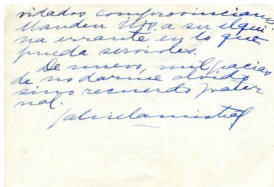 vitados comprovincianos
Manden Uds. a su
na errante en lo que
pueda servirles.
De nuevo, mil gracias
de no darme olvido
sino recuerdo pater
nal.
Gabriela Mistral